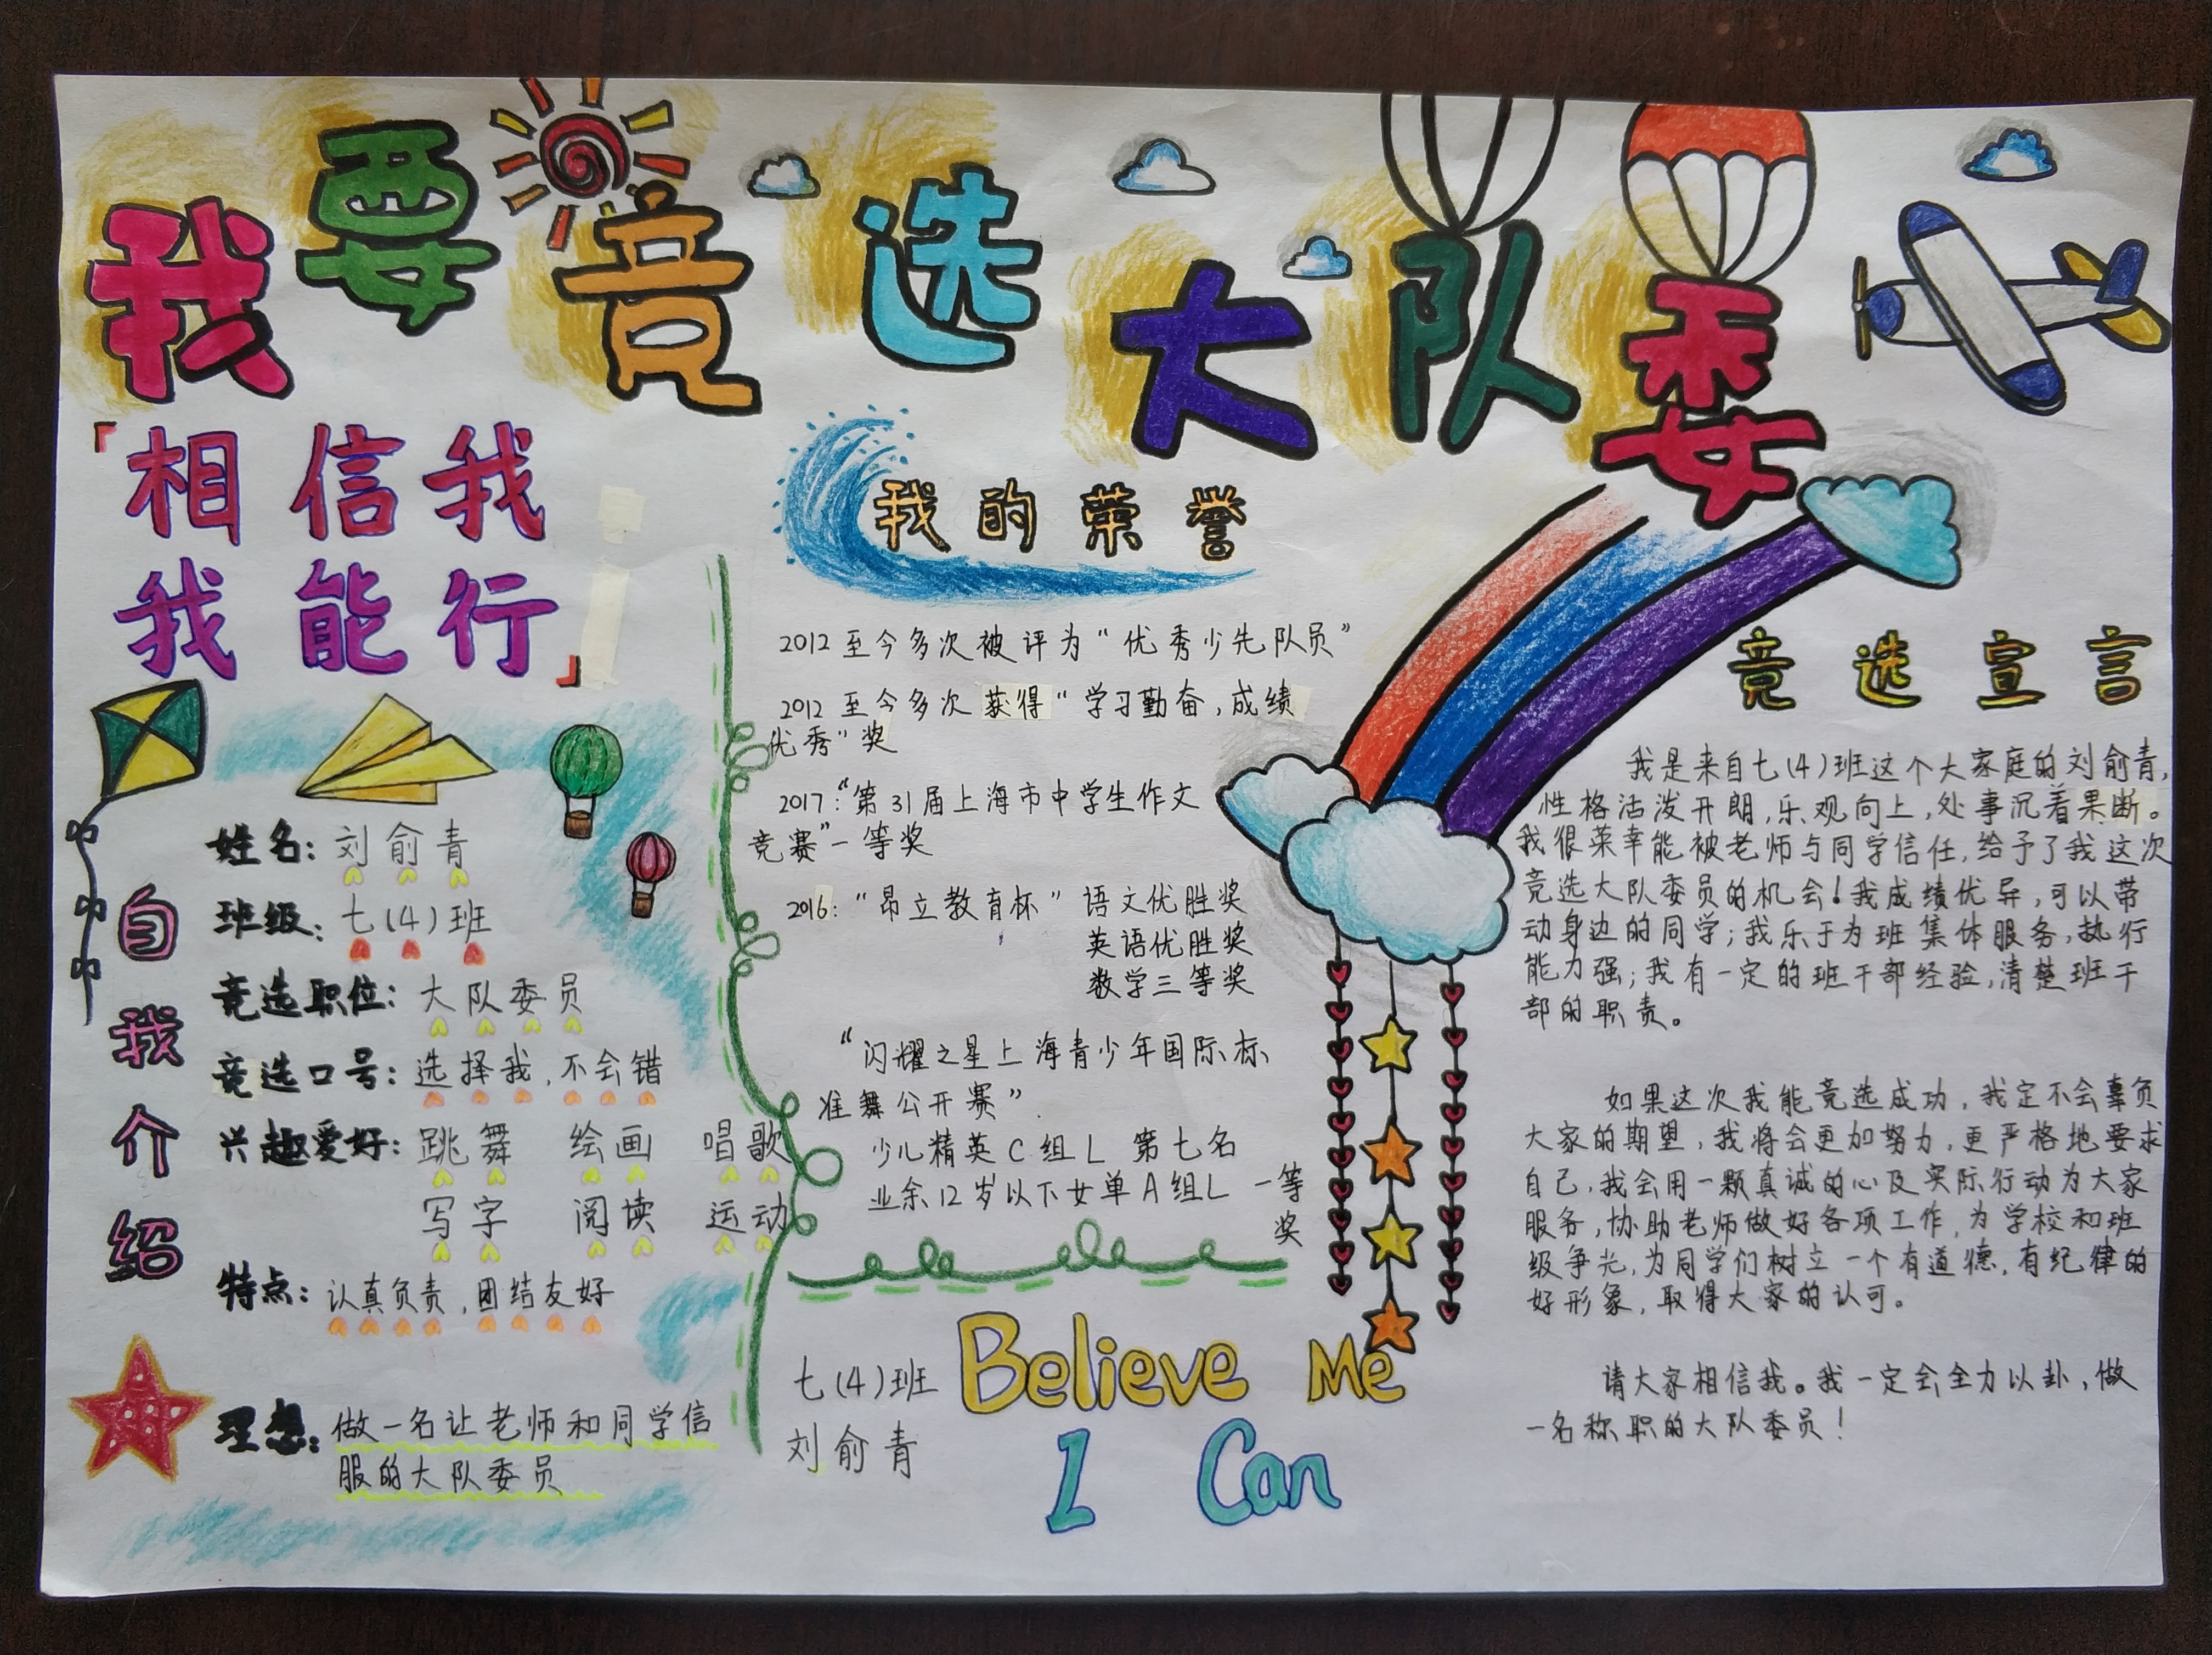 我要竞选大队委
「相信我
我能行」
自我介绍
姓名：刘俞青
班级：七（4）班
竞选职位：大队委员
竞选口号：选择我，不会错
兴趣爱好：跳舞 绘画 唱歌
写字 阅读 运动
特点：认真负责，团结友好
理想：做一名让老师和同学信
服的大队委员
我的荣誉
2012至今多次被评为“优秀少先队员”
2012至今多次获得“学习勤奋，成绩
优秀”奖
2017：“第31届上海市中学生作文
竞赛”一等奖
2016：“昂立教育杯”语文优胜奖
英语优胜奖
数学三等奖
“闪耀之星上海青少年国际标
准舞公开赛”.
少儿精英C组L 第七名
业余12岁以下女单A组L 一等
奖
七（4）班
刘俞青
Believe Me
I Can
竞选宣言
我是来自七（4）班这个大家庭的刘俞青，
性格活泼开朗，乐观向上，处事沉着果断。
我很荣幸能被老师与同学信任，给予了我这次
竞选大队委员的机会！我成绩优异，可以带
动身边的同学；我乐于为班集体服务，执行
能力强；我有一定的班干部经验，清楚班干
部的职责。
如果这次我能竞选成功，我定不会辜负
大家的期望，我将会更加努力，更严格地要求
自己，我会用一颗真诚的心及实际行动为大家
服务，协助老师做好各项工作，为学校和班
级争光，为同学们树立一个有道德，有纪律的
好形象，取得大家的认可。
请大家相信我。我一定会全力以卦，做
一名称职的大队委员！